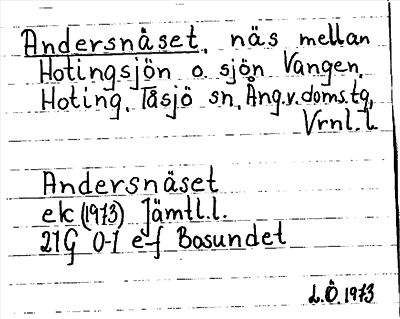 Andersnäset, näs mellan
Hotingsjön o. sjön Vängen,
Hoting. Tåsjö sn, Ång.v.doms.tg,
Vrnl.l.
Andersnäset
ek (1973) Jämtl.l.
21G 0-1 e-f Bosundet
L.Ö. 1973